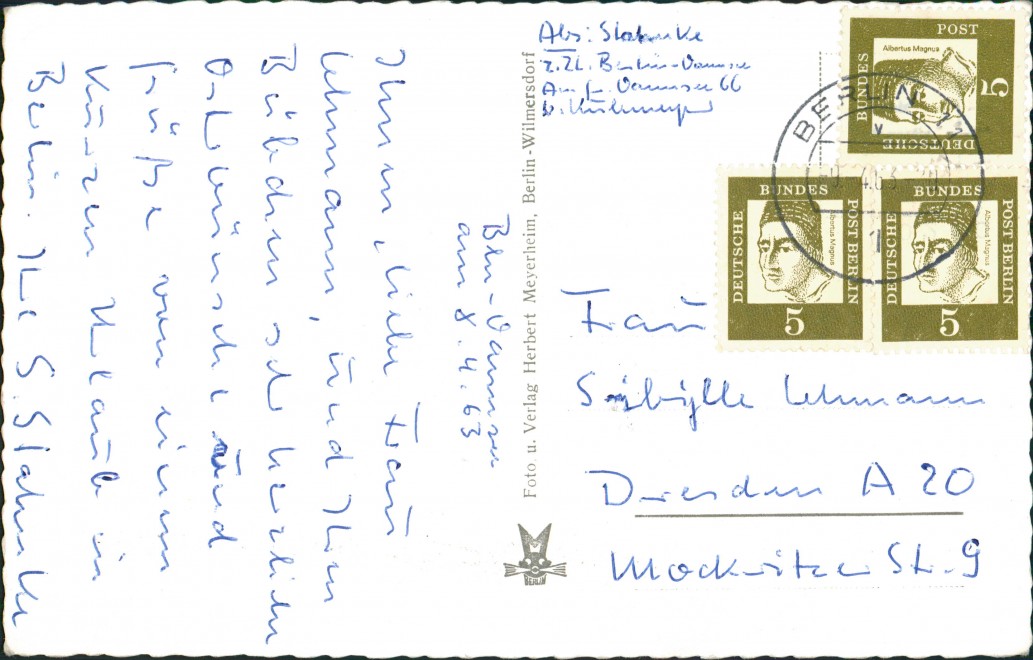 Bln-Wannsee
am 8.4.63
Ihnen, liebe Frau
Lehmann, und Ihren
Bübchen sehr herzlichen
Osterwünsche und
Grüße von einem
kurzen Urlaub in
Berlin. Ihre S. Stahnke
Foto u. Verlag Herbert Meyerheim, Berlin-Wilmersdorf
BERLIN
Abs: Stahnke
z.Zt. Berlin-Wannsee
Am gr. Wannsee 66
b.
Frau
Sybille Lehmann
Dresden A 20
Mockritzer Str. 9
DEUTSCHE BUNDES POST
Albertus Magnus
5
DEUTSCHE BUNDES POST BERLIN
Albertus Magnus
5
DEUTSCHE BUNDES POST BERLIN
Albertus Magnus
5
BERLIN 11
4.63